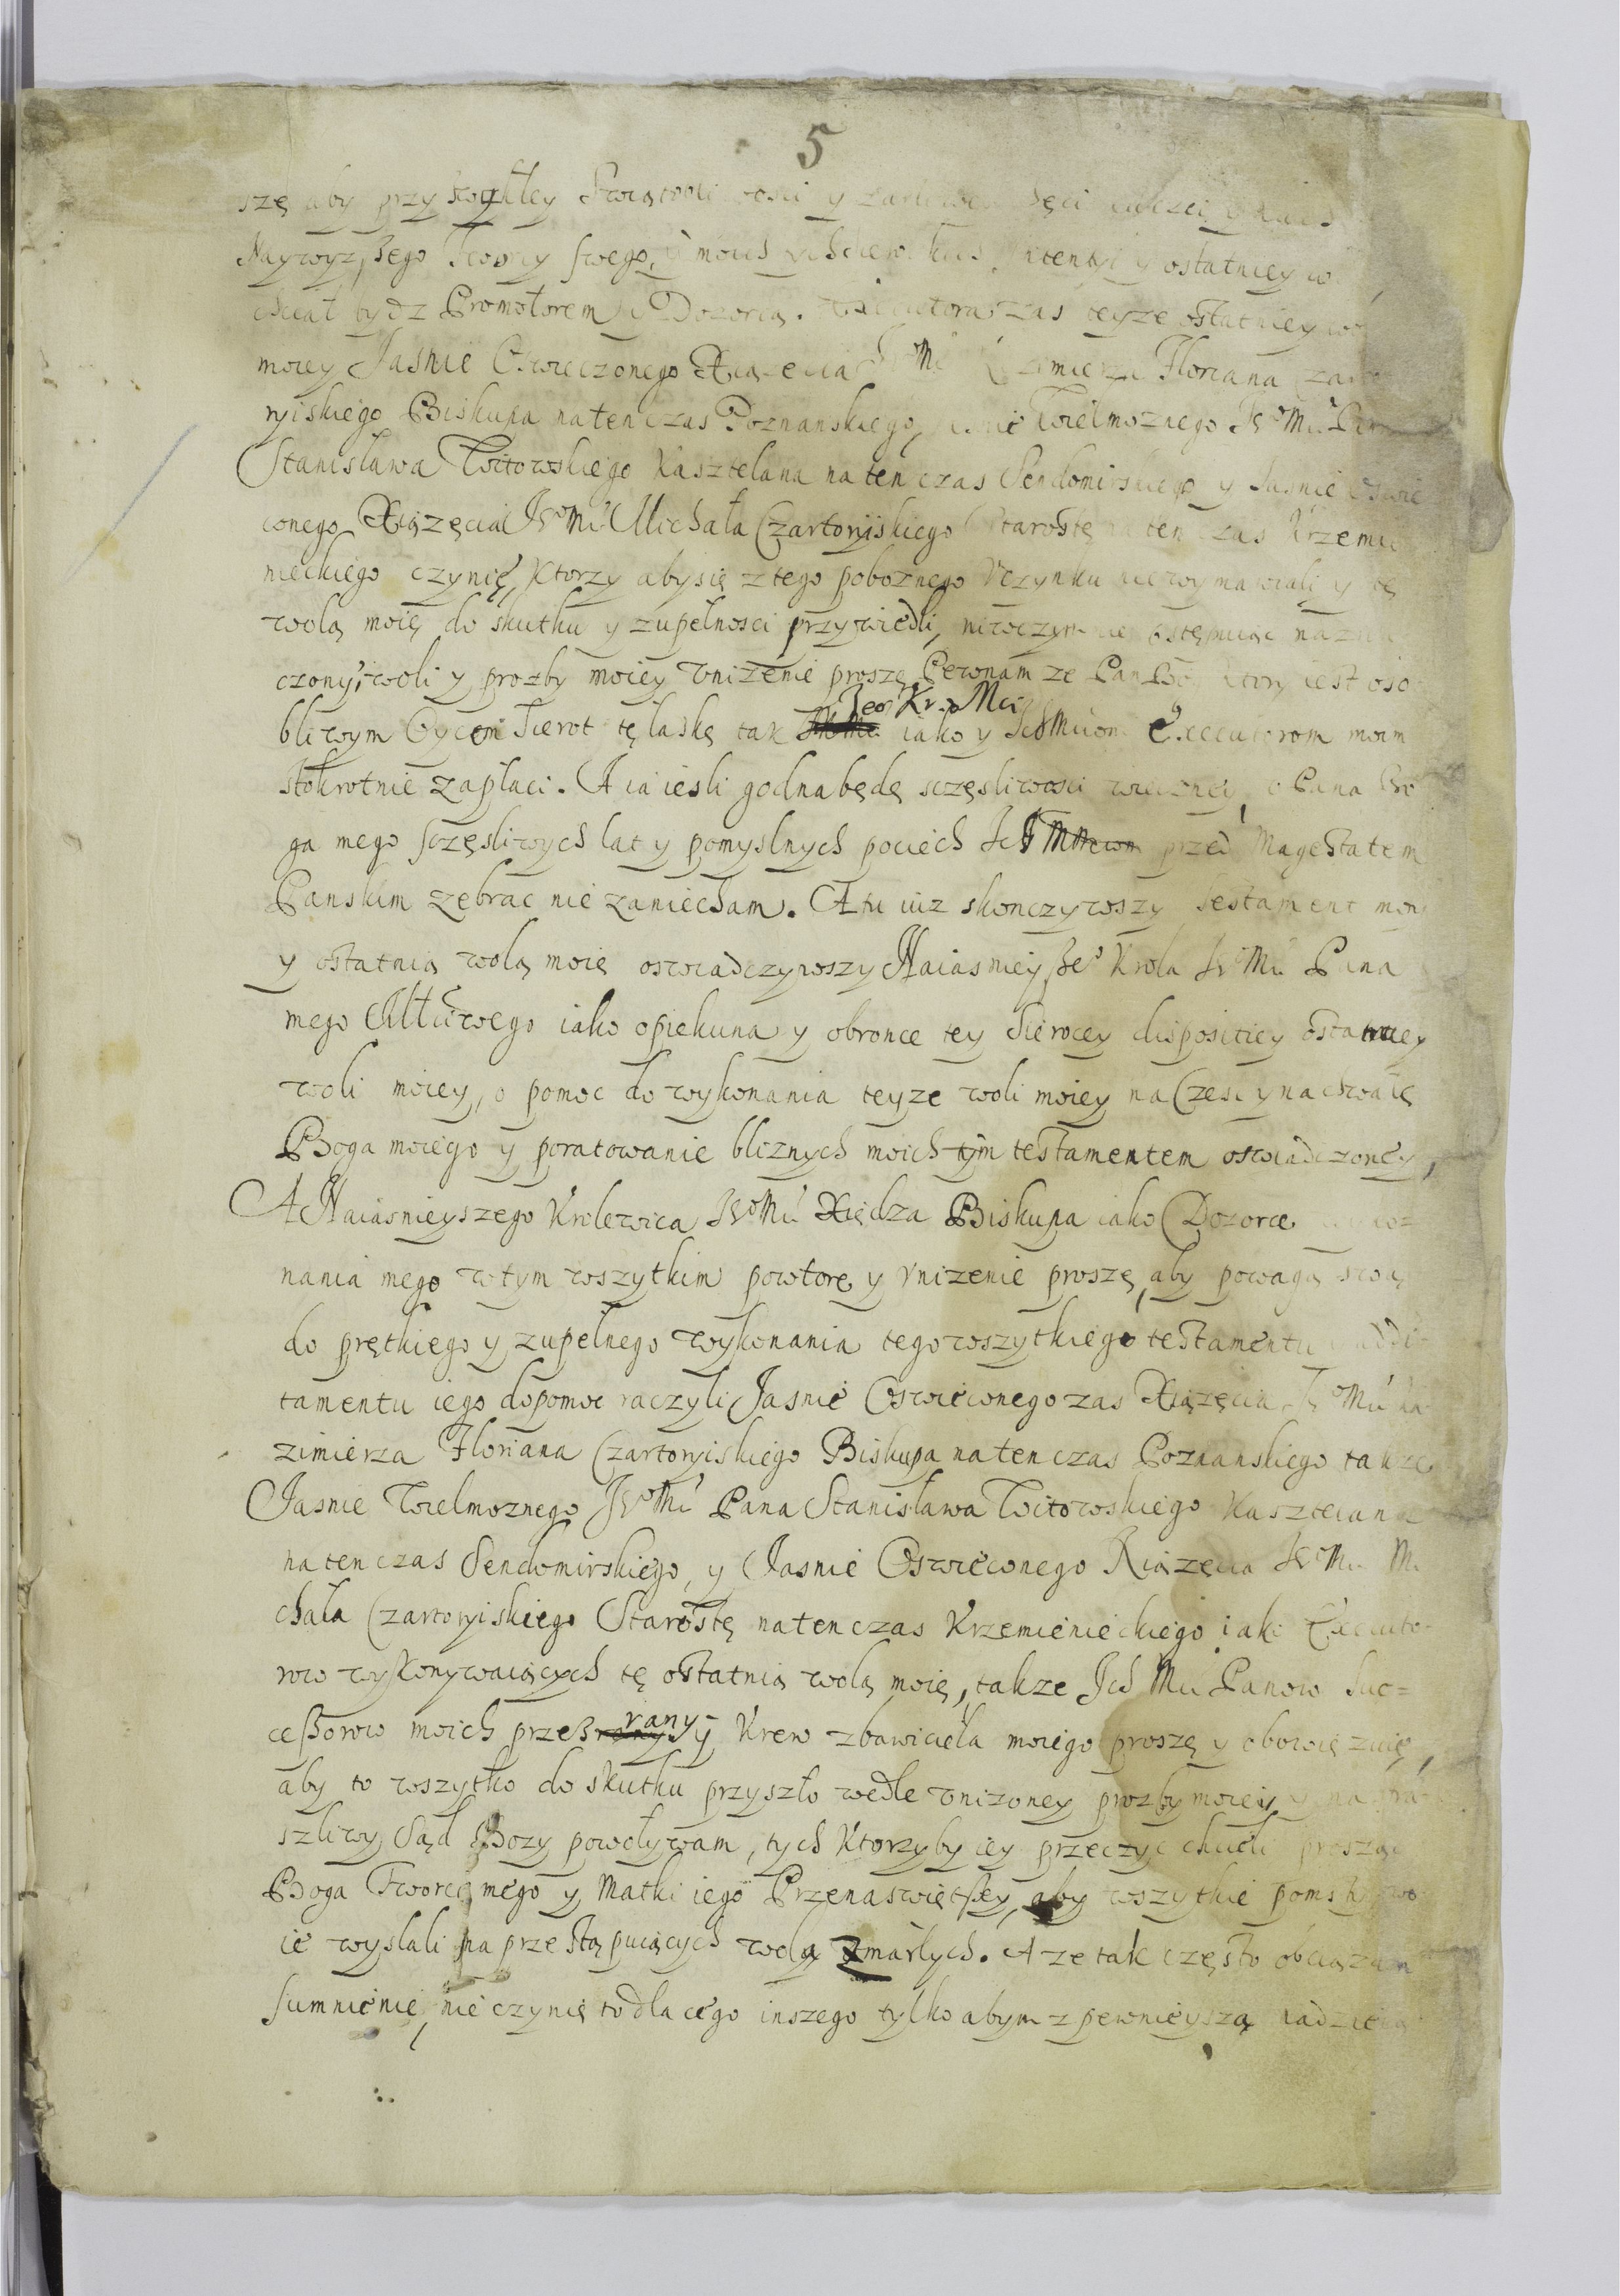 5
szę aby przy zwykłey Swiątobli
Naywyzszego Tworcy swego, y moich ostatniey
chciał bydz Promotorem y Dozorcą. zas teyze ostatniey
moiey Jasnie Oswieczonego Xiązecia Floriana
ryiskiego Biskupa na ten czas Poznanskiego, Wielmoznego Je°Mci
Stanisława Witowskiego Kasztelana na ten czas Sendomirskiego y Jasnie Oswie
conego Xiązęcia Je°Mci Michała Czartoryiskiego Starostę na ten czas Krzemie
nieckiego czynię, Ktorzy aby się z tego poboznego Vczynku nie wymawiali y tę
wolą moię do skutku y zupełnosci przywiedli,
czony woli y prozby moiey vnizenie proszę Pewnam ze Pan Bog ktory iest oso
bliwym Oycem Sierot tę łaskę tak Jeo Kr. Mci iako y IchMciom Executorom moim
stokrotnie zapłaci. A ia iesli godna będę sczęsliwosci wieczney, v Pana Bo
ga mego sczęsliwych lat y pomyslnych pociech Ich przed Magestatem
Panskim zebrac nie zaniecham. A tu iuz skonczywszy testament moy
y ostatnią wolą moię oswiadczywszy Naiasnieyszeo Krola Je°Mci Pana
mego Mtciwego iako opiekuna y obronce tey Sierocey dispositiey ostatniey
woli moiey, o pomoc do wykonania teyze woli moiey na Czesc y na chwałę
Boga moiego y poratowanie bliznych moich tym testamentem oswiadczoney,
A Naiasnieyszego Krolewica Je°Mci Xiędza Biskupa iako Dozorce
nania mego w tym wszytkim powtore y vnizenie proszę, aby powagą swą
do prętkiego y zupełnego wykonania tego wszytkiego testamentu
tamentu iego dopomoc raczyli Jasnie Oswieconego zas Xiązęcia Je°Mci Ka
zimierza Floriana Czartoryiskiego Biskupa na ten czas Poznanskiego takze
Jasnie Wielmoznego Je°Mci Pana Stanisława Witowskiego Kasztelana
na ten czas Sendomirskiego, y Jasnie Oswieconego Xiązęcia Je°Mci Mi
chała Czartoryiskiego Starostę na ten czas Krzemienieckiego iako Executo
row wykonywaiących tę ostatnią wolą moię, takze Ich Mci Panow Suc=
cessorow moich przez rany y Krew zbawiciela moiego proszę y obowięzuię,
aby to wszytko do skutku przyszło wedle vnizoney prozby moiey, y na stra
szliwy Sąd Bozy powoływam, tych Ktorzyby iey przeczyc chcieli prosząc
Boga Tworcę mego y Matki iego Przenaswiętszey, aby wszytkie pomsty swo
ie wysłali na przestąpuiących wolą zmarłych. A ze tak często obciązam
sumnienie, nie czynię to dla czego inszego tylko abym z pewnieyszą nadzieią